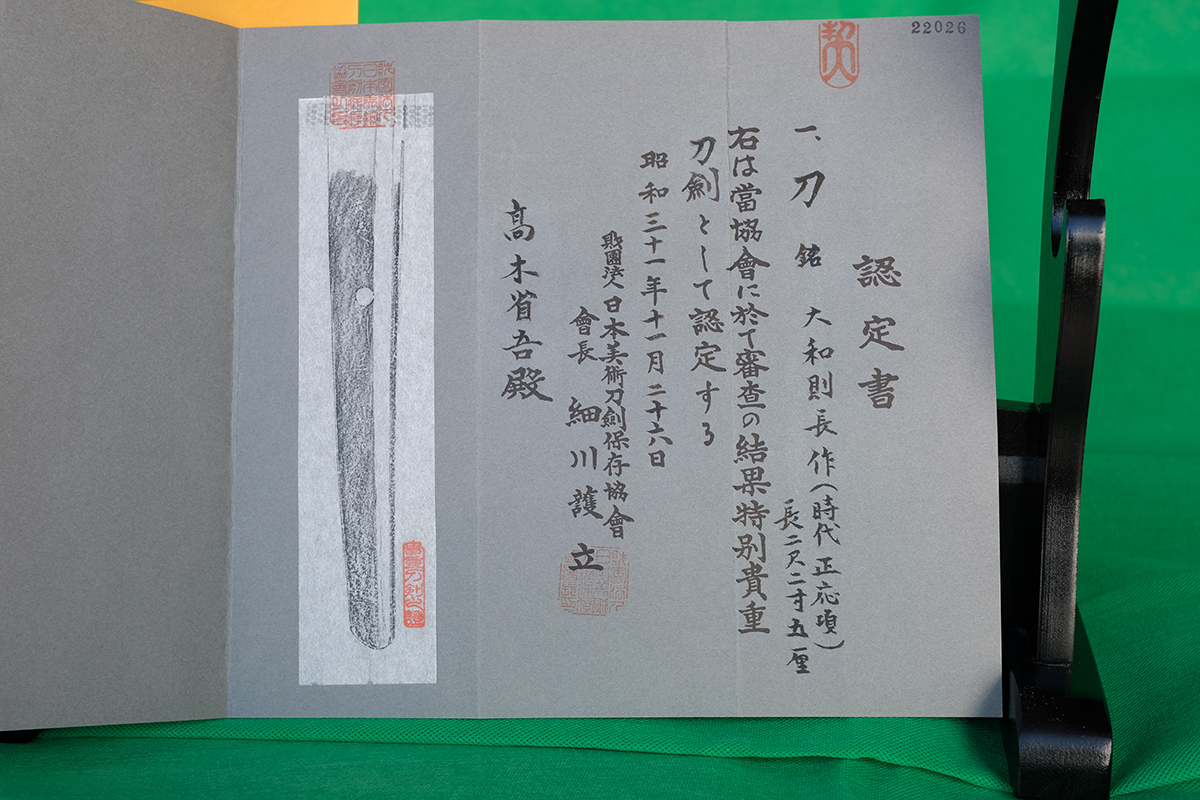 22026
認定書
一、刀 銘 大和則長作(時代正応頃)
長二尺二寸五厘
右は當協會に於て審査の結果特別貴重
刀劍として認定する
昭和三十一年十一月二十六日
財團法人日本美術刀劍保存協會
會長 細川護立
高木省吾殿